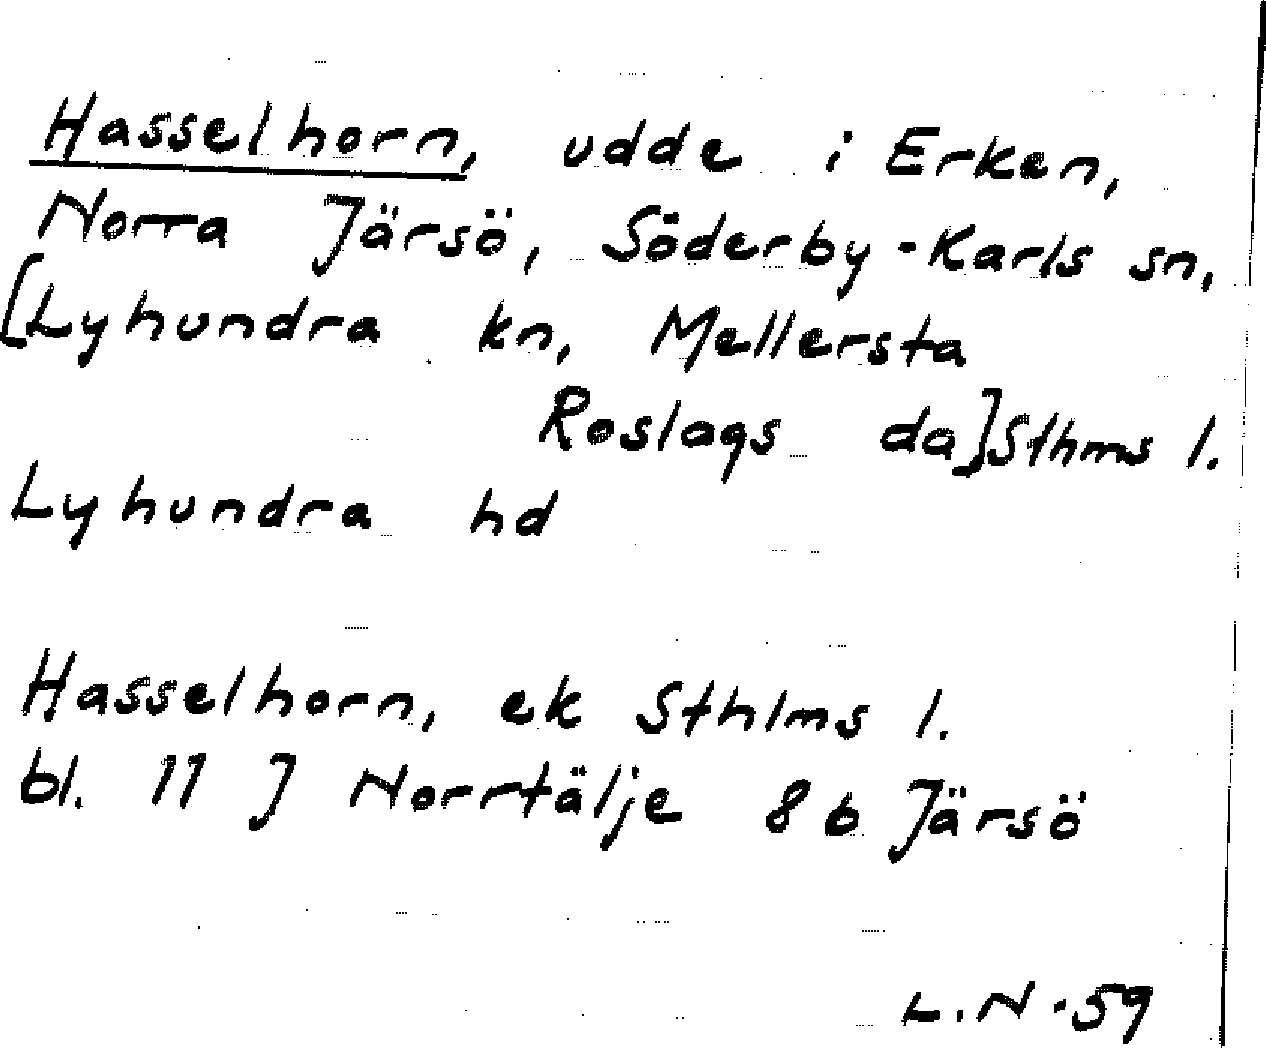 Hasselhorn, udde i Erken,
Norra Järsö, Söderby-Karls sn,
[Lyhundra kn, Mellersta
Roslags da] Sthms l.
Lyhundra hd
Hasselhorn, ek Sthlms l.
bl. 11 J Norrtälje 8 b Järsö
L.N -59